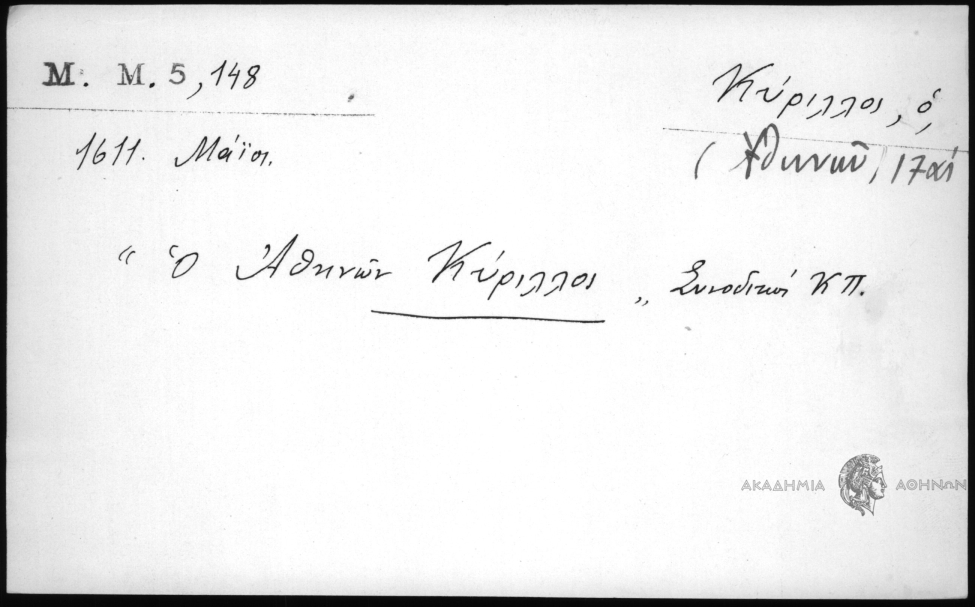 Μ. Μ. 5, 148
Κύριλλος, ὁ,
1611. Μάϊος.
(Ἀθηνῶν, 17ος
“ Ὁ Ἀθηνῶν Κύριλλος „ Συνοδικός ΚΠ.
ΑΚΑΔΗΜΙΑ ΑΘΗΝΩΝ